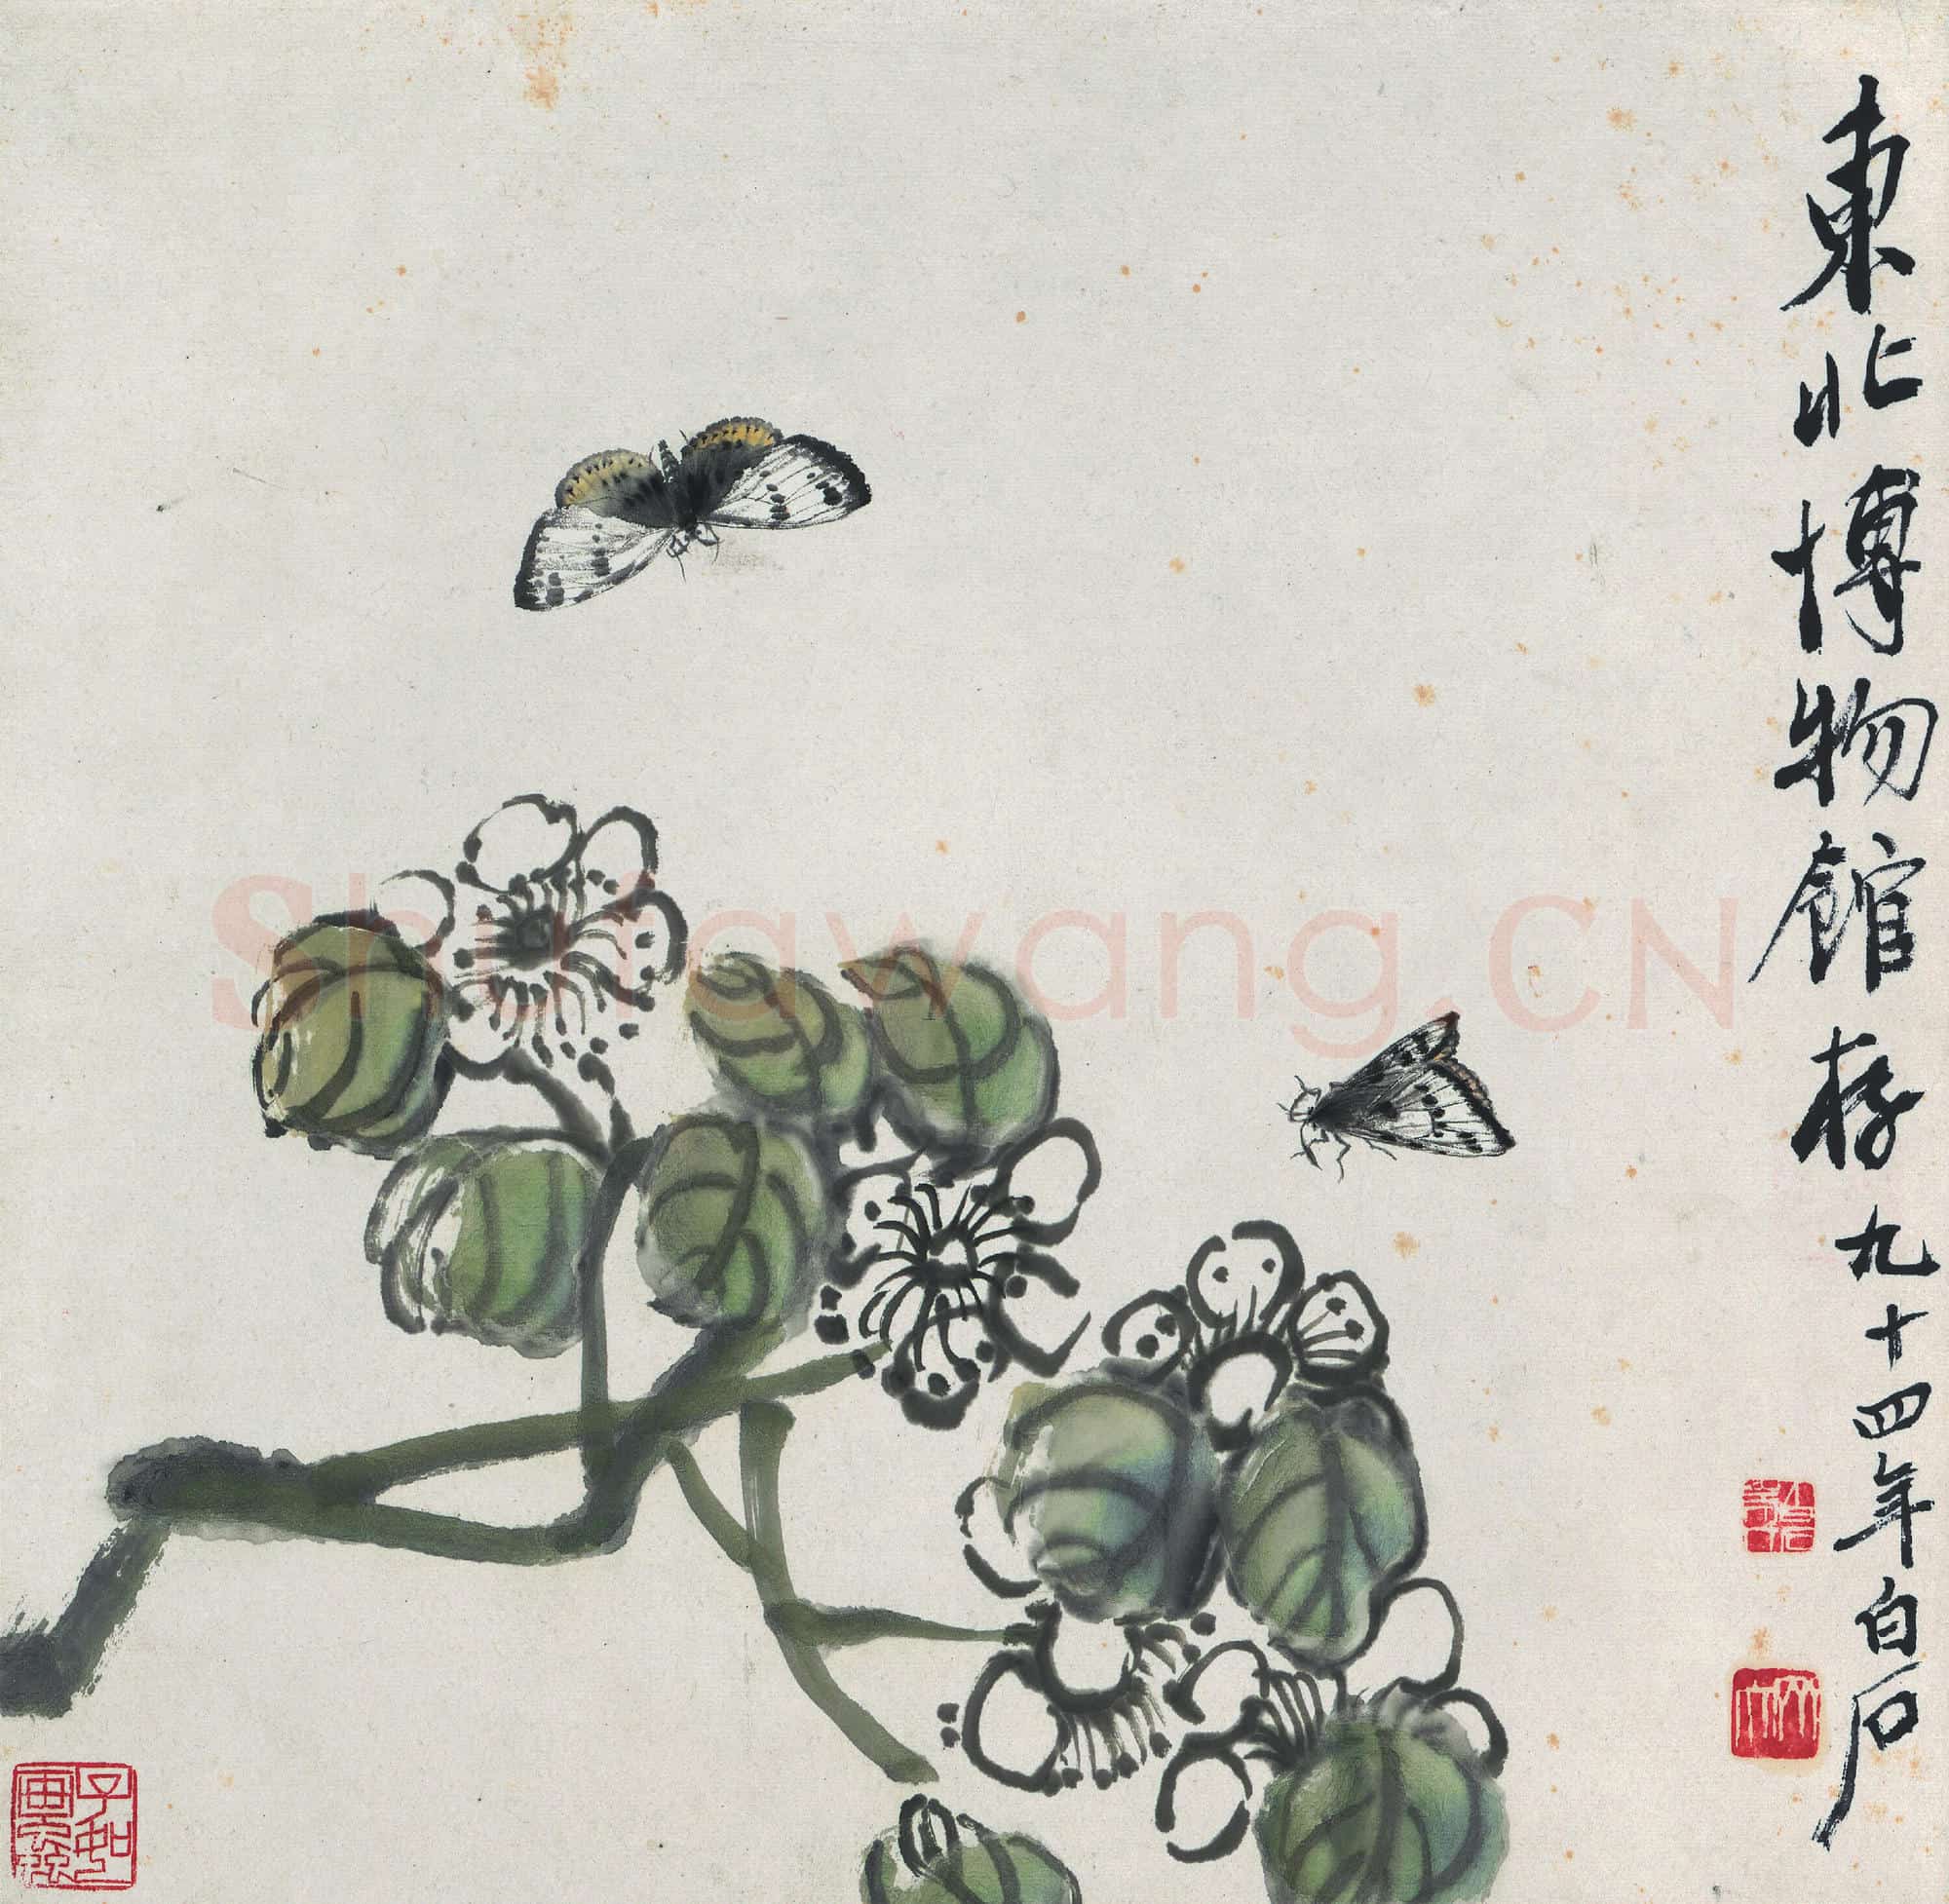 東北博物館存九十四年白石
Shufawang.CN